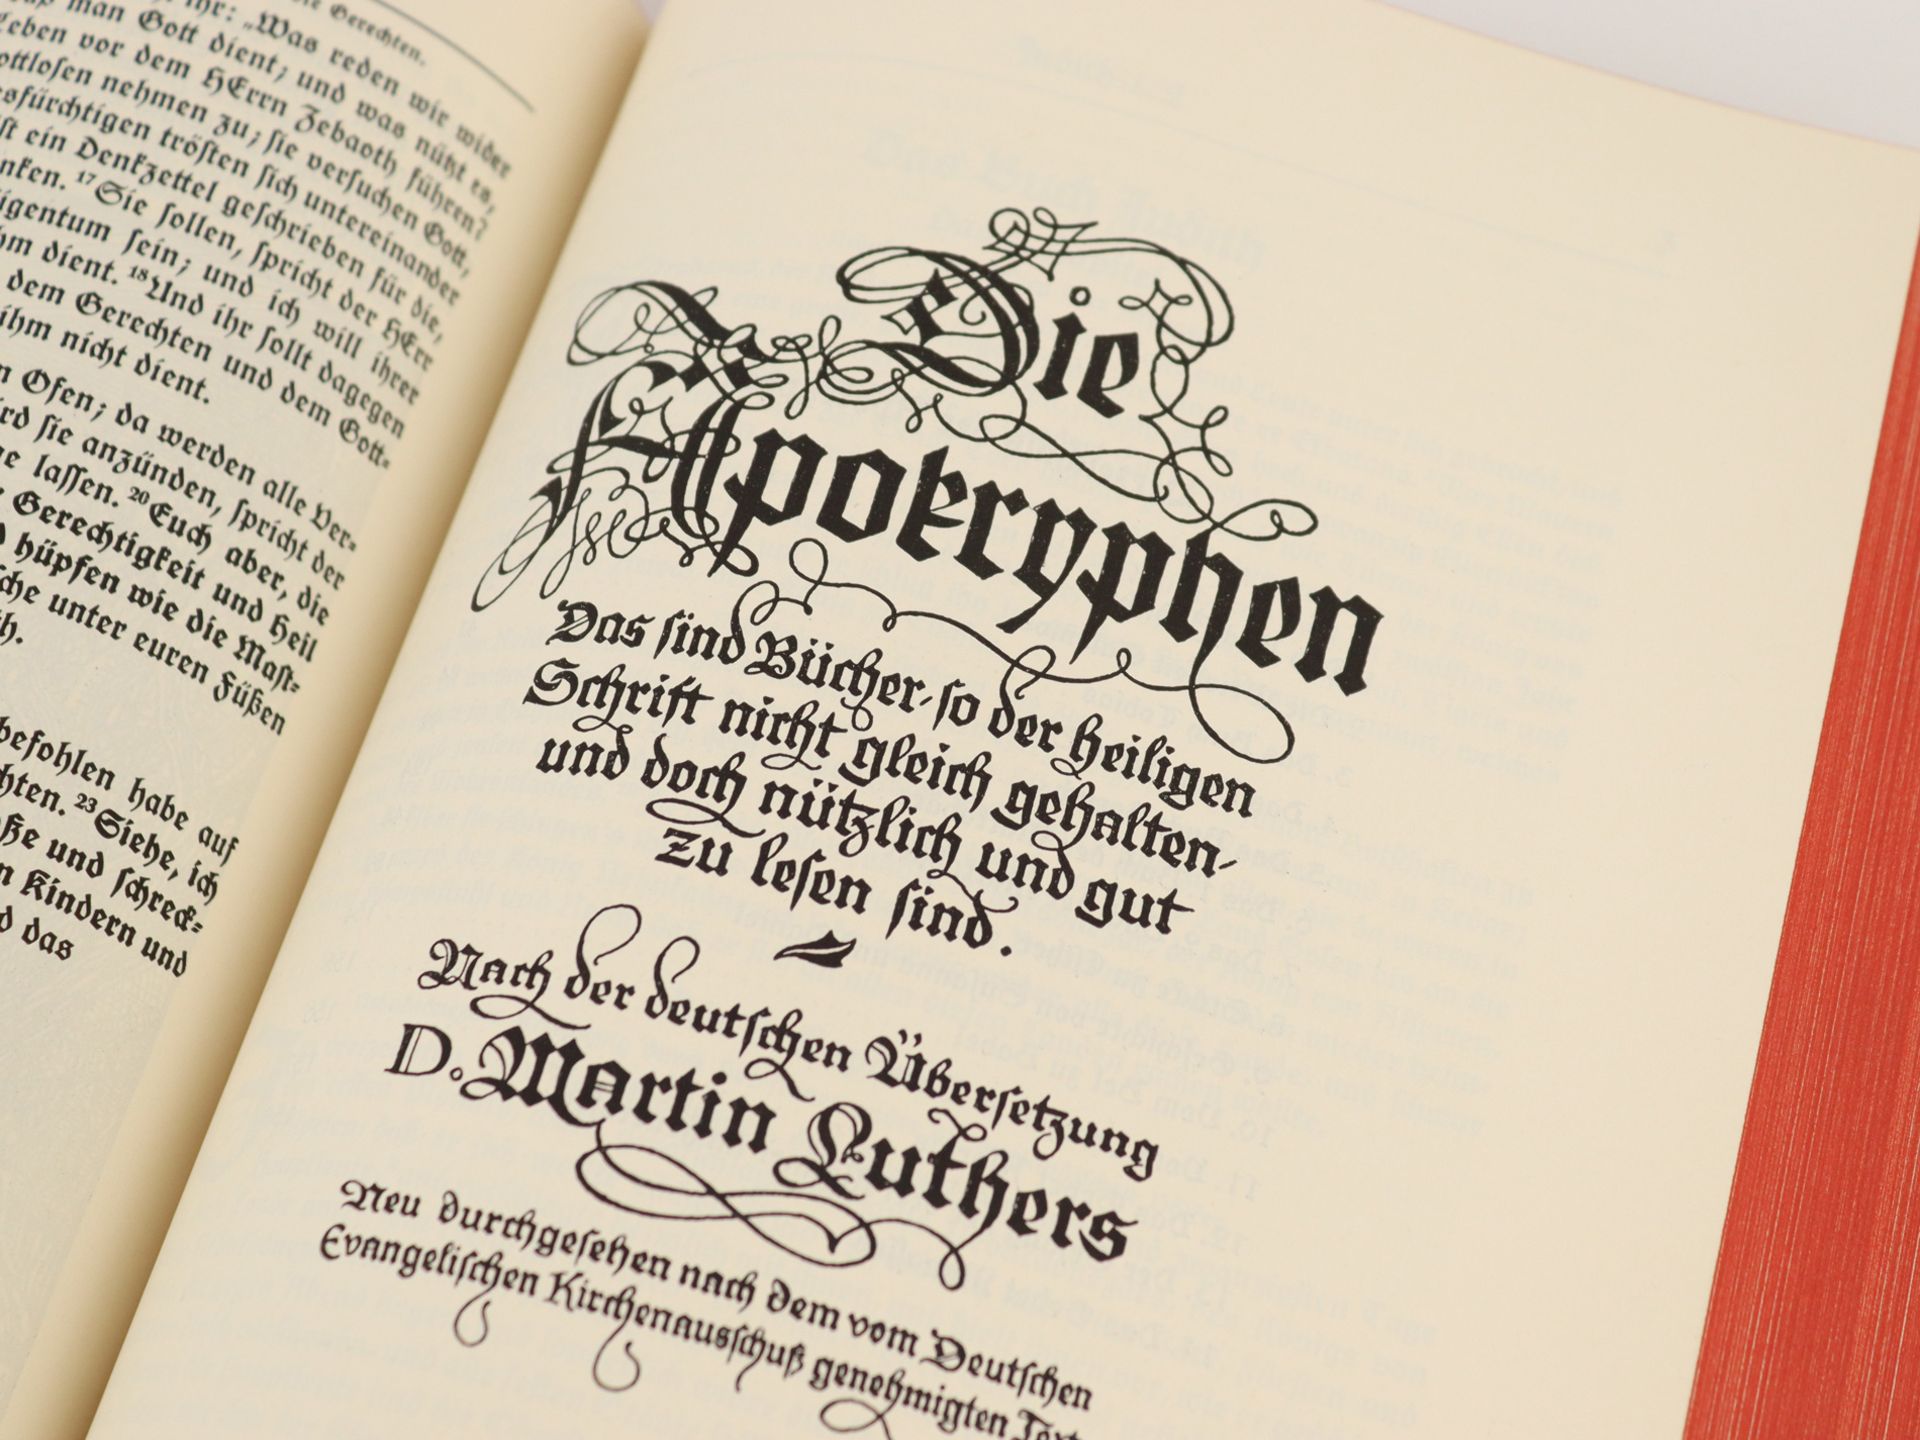 die Gerechten.
ihr: „Was reden wir wider
man Gott dient; und was nützt es,
Leben vor dem HErrn Zebaoth führen?
ottlosen nehmen zu; sie versuchen Gott,
esfürchtigen trösten sich untereinander
ist ein Denkzettel geschrieben für die,
nken. 17 Sie sollen, spricht der HErr
igentum sein; und ich will ihrer
hm dient. 18 Und ihr sollt dagegen
dem Gerechten und dem Gott-
ihm nicht dient.
n Ofen; da werden alle Ver-
rd sie anzünden, spricht der
ne lassen. 20 Euch aber, die
Gerechtigkeit und Heil
d hüpfen wie die Mast-
sche unter euren Füßen
h.
befohlen habe auf
chten. 23 Siehe, ich
oße und schreck-
n Kindern und
d das
Die
Apokryphen
Das sind Bücher, so der Heiligen
Schrift nicht gleich gehalten,
und doch nützlich und gut
zu lesen sind.
Nach der deutschen Übersetzung
D. Martin Luthers
Neu durchgesehen nach dem vom Deutschen
Evangelischen Kirchenausschuß genehmigten Text